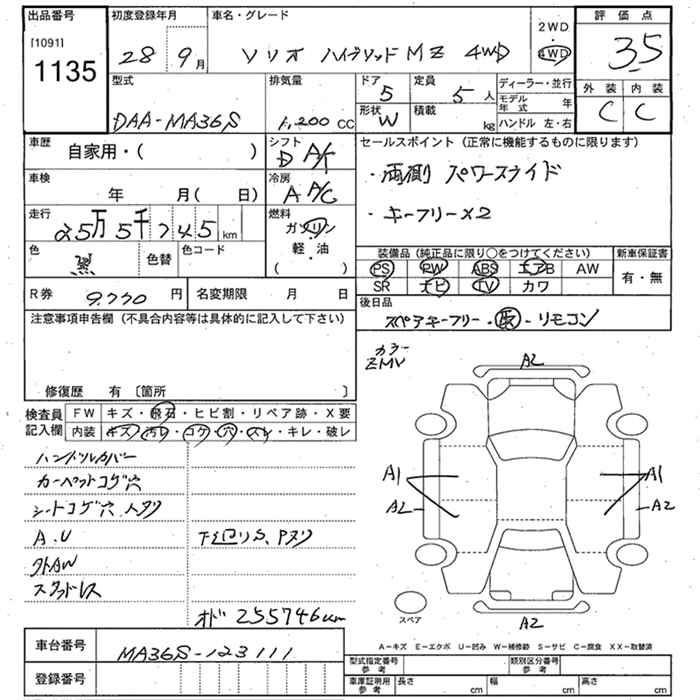 出品番号 初度登録年月 車名・グレード 2WD 評価点
[1091] 28 9月 ソリオ ハイブリッドMZ 4WD 4WD 3.5
1135 外装 内装
C C
型式 排気量 ドア 定員 ディーラー・並行
5 5人 モデル年式 年
DAA-MA36S 1,200cc 形状 積載 ハンドル 左・右
W kg
車歴 自家用・( ) シフト D A/T セールスポイント(正常に機能するものに限ります)
車検 年 月( 日) 冷房 A A/C ・両側 パワースライド
走行 25万5千745km 燃料 ガソリン ・キーフリー×2
軽・油
( )
色 黒 色替 色コード
装備品(純正品に限り○をつけてください) 新車保証書
PS PW ABS エアB AW 有・無
SR ナビ TV カワ
R券 9,770円 名変期限 月 日
後日品
スペアキーフリー・取・リモコン
注意事項申告欄(不具合内容等は具体的に記入して下さい)
修復歴 有〔箇所 〕
カラー
ZMV
検査員記入欄 FW キズ・飛石・ヒビ割・リペア跡・X要
内装 キズ・汚レ・コゲ・穴・スレ・キレ・破レ
ハンドルカバー
カーペットコゲ穴
シートコゲ穴
A.U 下廻りS、Pヌリ
クトAW
スタッドレス
オド 255746km
A2
A1 A1
A2 A2
スペア A2
A-キズ E-エクボ U-凹み W-補修跡 S-サビ C-腐食 XX-取替済
車台番号 MA36S-123111
登録番号
型式指定番号 参考 類別区分番号 参考
車庫証明用 参考 長さ cm 幅 cm 高さ cm